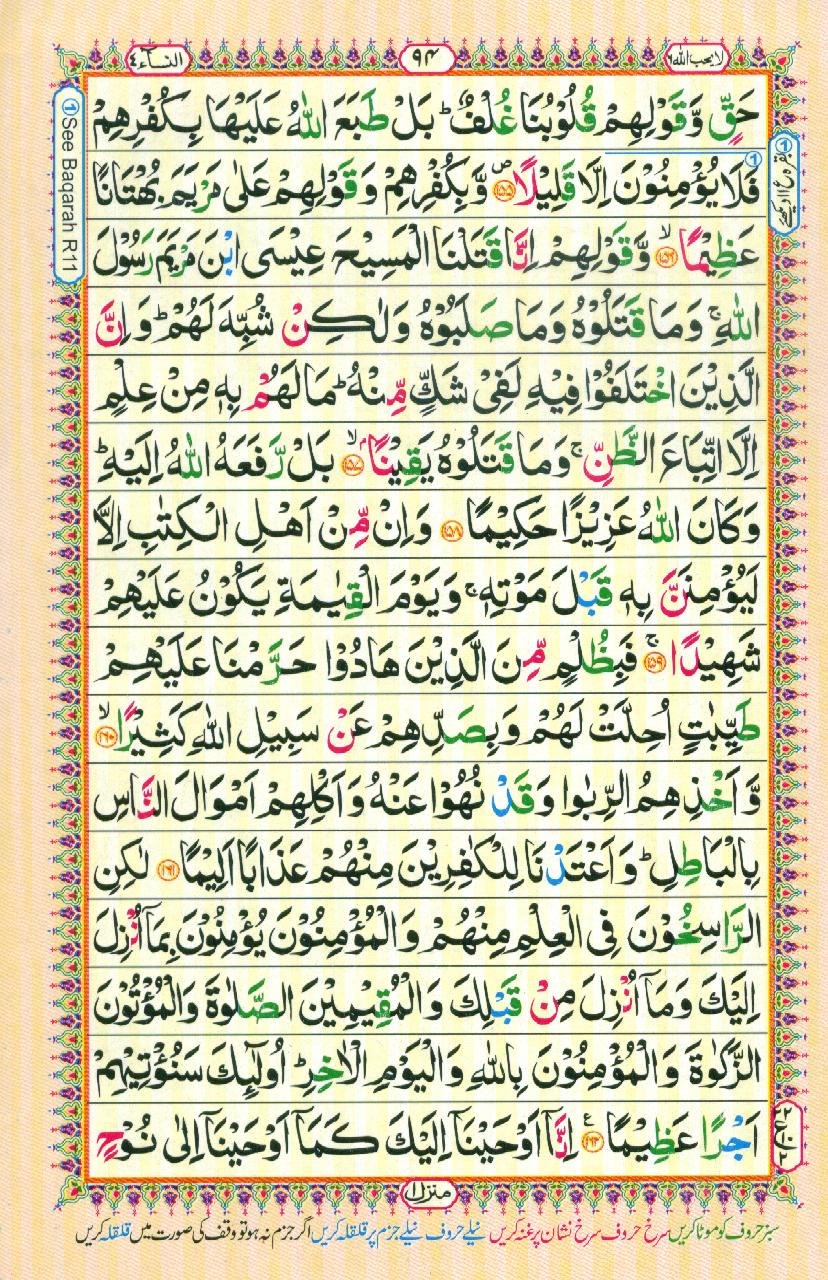 لا یحب اللہ ٦
٩٤
النسآء ٤
حَقٍّ وَّقَوْلِهِمْ قُلُوْبُنَا غُلْفٌ ؕ بَلْ طَبَعَ اللّٰهُ عَلَيْهَا بِكُفْرِهِمْ
فَلَا يُؤْمِنُوْنَ اِلَّا قَلِيْلًا ۪﴿۱۵۵﴾ وَّبِكُفْرِهِمْ وَقَوْلِهِمْ عَلٰى مَرْيَمَ بُهْتَانًا
عَظِيْمًا ۙ﴿۱۵۶﴾ وَّقَوْلِهِمْ اِنَّا قَتَلْنَا الْمَسِيْحَ عِيْسَى ابْنَ مَرْيَمَ رَسُوْلَ
اللّٰهِ ۚ وَمَا قَتَلُوْهُ وَمَا صَلَبُوْهُ وَلٰكِنْ شُبِّهَ لَهُمْ ؕ وَاِنَّ
الَّذِيْنَ اخْتَلَفُوْا فِيْهِ لَفِيْ شَكٍّ مِّنْهُ ؕ مَا لَهُمْ بِهٖ مِنْ عِلْمٍ
اِلَّا اتِّبَاعَ الظَّنِّ ۚ وَمَا قَتَلُوْهُ يَقِيْنًۢا ۙ﴿۱۵۷﴾ بَلْ رَّفَعَهُ اللّٰهُ اِلَيْهِ ؕ
وَكَانَ اللّٰهُ عَزِيْزًا حَكِيْمًا ﴿۱۵۸﴾ وَاِنْ مِّنْ اَهْلِ الْكِتٰبِ اِلَّا
لَيُؤْمِنَنَّ بِهٖ قَبْلَ مَوْتِهٖ ۚ وَيَوْمَ الْقِيٰمَةِ يَكُوْنُ عَلَيْهِمْ
شَهِيْدًا ۚ﴿۱۵۹﴾ فَبِظُلْمٍ مِّنَ الَّذِيْنَ هَادُوْا حَرَّمْنَا عَلَيْهِمْ
طَيِّبٰتٍ اُحِلَّتْ لَهُمْ وَبِصَدِّهِمْ عَنْ سَبِيْلِ اللّٰهِ كَثِيْرًا ۙ﴿۱۶۰﴾
وَّاَخْذِهِمُ الرِّبٰوا وَقَدْ نُهُوْا عَنْهُ وَاَكْلِهِمْ اَمْوَالَ النَّاسِ
بِالْبَاطِلِ ؕ وَاَعْتَدْنَا لِلْكٰفِرِيْنَ مِنْهُمْ عَذَابًا اَلِيْمًا ﴿۱۶۱﴾ لٰكِنِ
الرَّاسِخُوْنَ فِي الْعِلْمِ مِنْهُمْ وَالْمُؤْمِنُوْنَ يُؤْمِنُوْنَ بِمَآ اُنْزِلَ
اِلَيْكَ وَمَآ اُنْزِلَ مِنْ قَبْلِكَ وَالْمُقِيْمِيْنَ الصَّلٰوةَ وَالْمُؤْتُوْنَ
الزَّكٰوةَ وَالْمُؤْمِنُوْنَ بِاللّٰهِ وَالْيَوْمِ الْاٰخِرِ ؕ اُولٰٓئِكَ سَنُؤْتِيْهِمْ
اَجْرًا عَظِيْمًا ﴿۱۶۲﴾ اِنَّآ اَوْحَيْنَآ اِلَيْكَ كَمَآ اَوْحَيْنَآ اِلٰى نُوْحٍ
① See Baqarah R11
منزل ١
سبز حروف کو موٹا کریں سرخ حروف سرخ نشان پر غنہ کریں نیلے حروف نیلے جزم پر قلقلہ کریں اگر جزم نہ ہو تو وقف کی صورت میں قلقلہ کریں